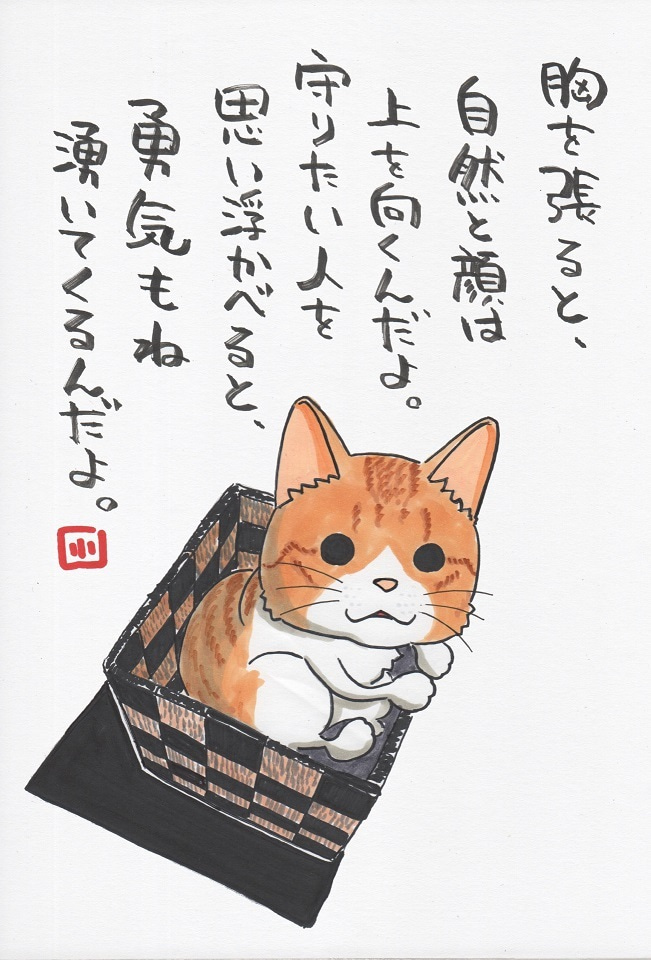 胸を張ると、
自然と顔は
上を向くんだよ。
守りたい人を
思い浮かべると、
勇気もね
湧いてくるんだよ。
小